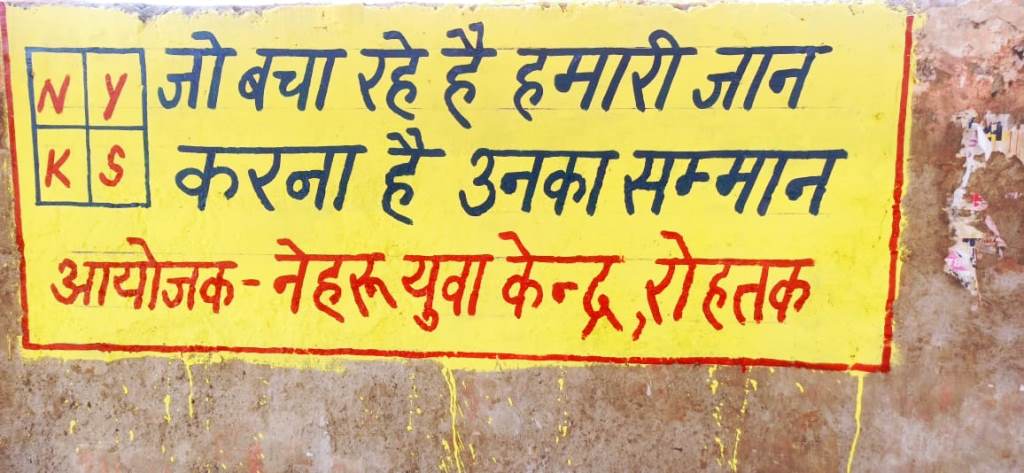 N Y
K S
जो बचा रहे है हमारी जान
करना है उनका सम्मान
आयोजक - नेहरू युवा केन्द्र, रोहतक